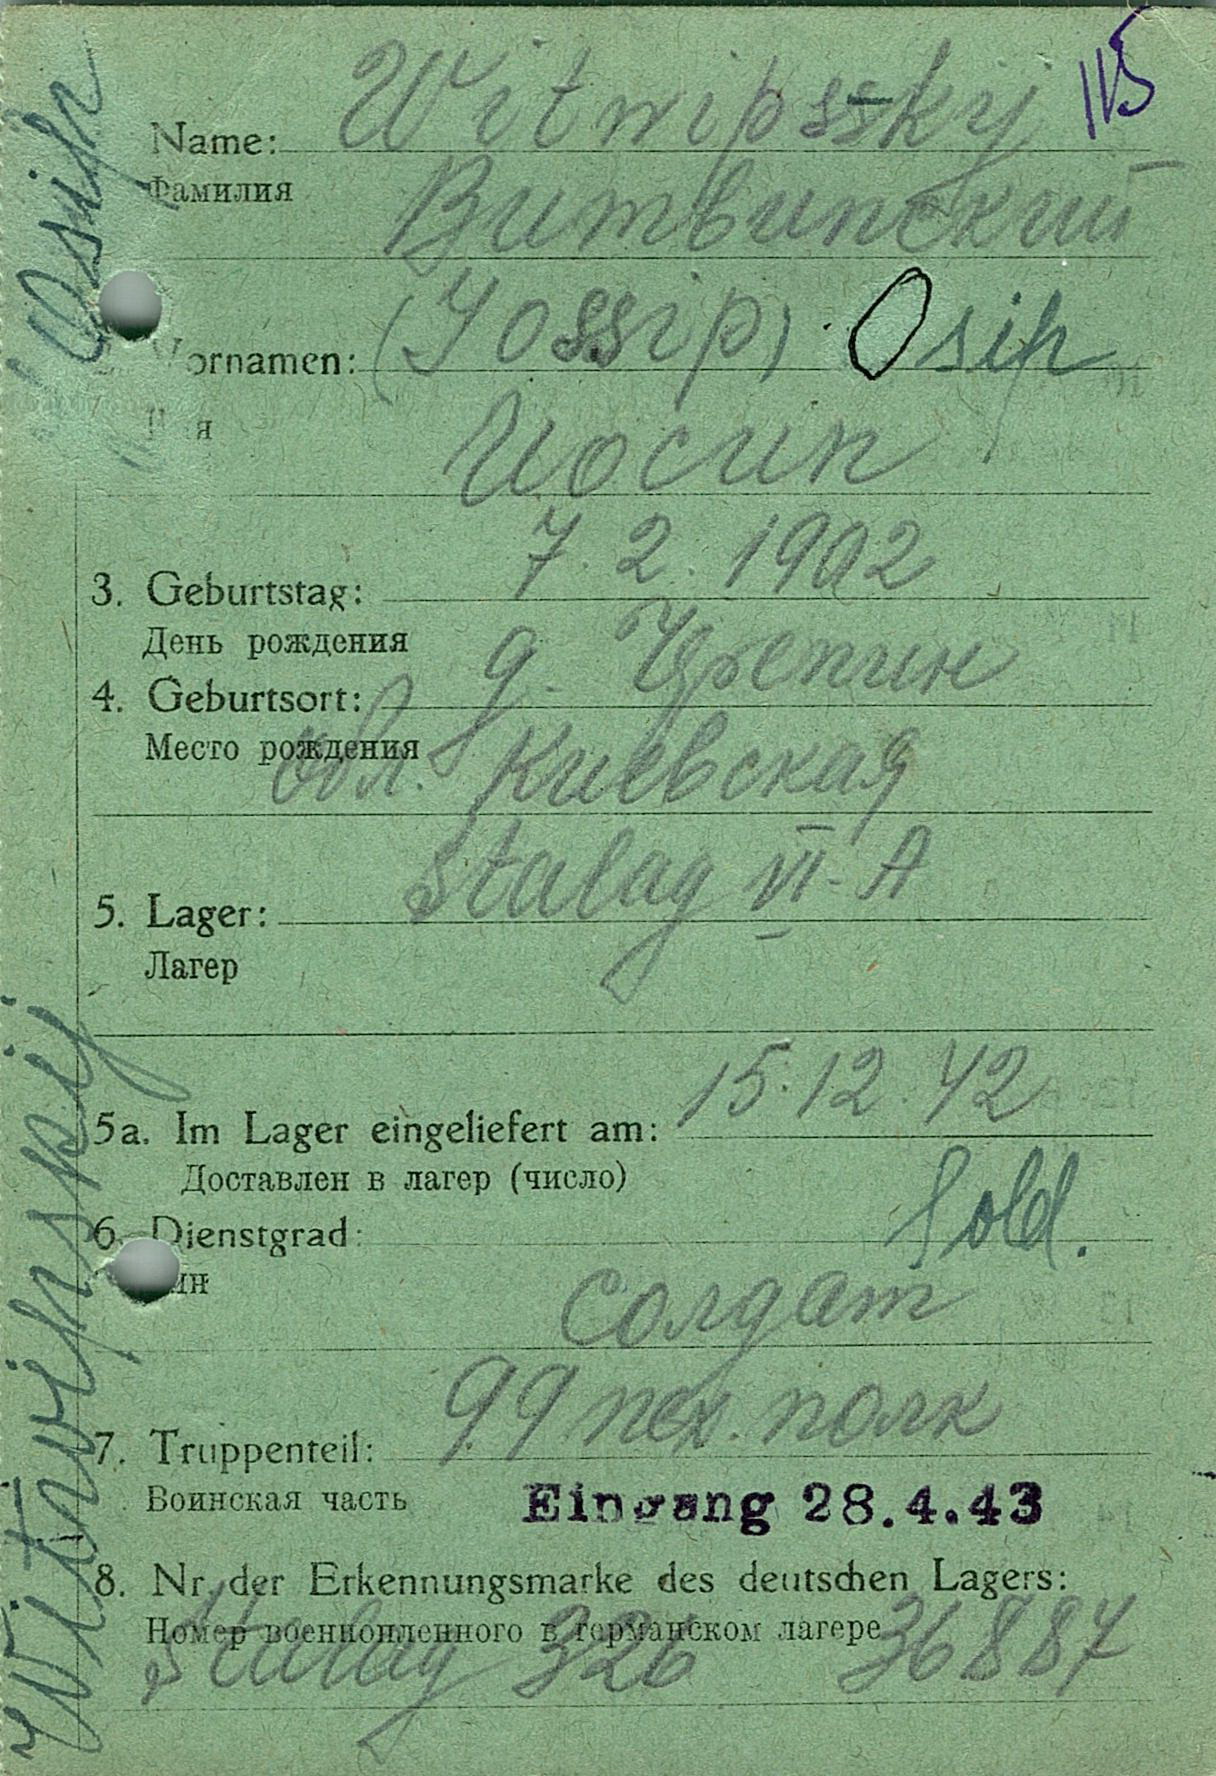 115
Name: Witwipsskij
Фамилия Витвипский
2. Vornamen: (Yossip) Osip
Имя Иосип
3. Geburtstag: 7.2.1902
День рождения
4. Geburtsort: д.
Место рождения обл. Киевская
5. Lager: Stalag VI-A
Лагер
5a. Im Lager eingeliefert am: 15.12.42
Доставлен в лагер (число)
6. Dienstgrad: Sold.
Чин солдат
7. Truppenteil: 99 пех. полк
Воинская часть Eingang 28.4.43
8. Nr. der Erkennungsmarke des deutschen Lagers:
Номер военнопленного в германском лагере
Stalag 326 36887
Witwipskij Osip